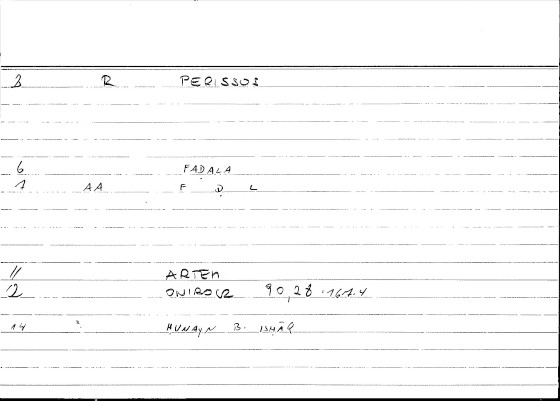 3 R PERISSOS
6 FAḌALA
1 AA F Ḍ L
11 ARTEM
12 ONIROCR 90,28 161.4
14 ḤUNAYN B. ISḤĀQ